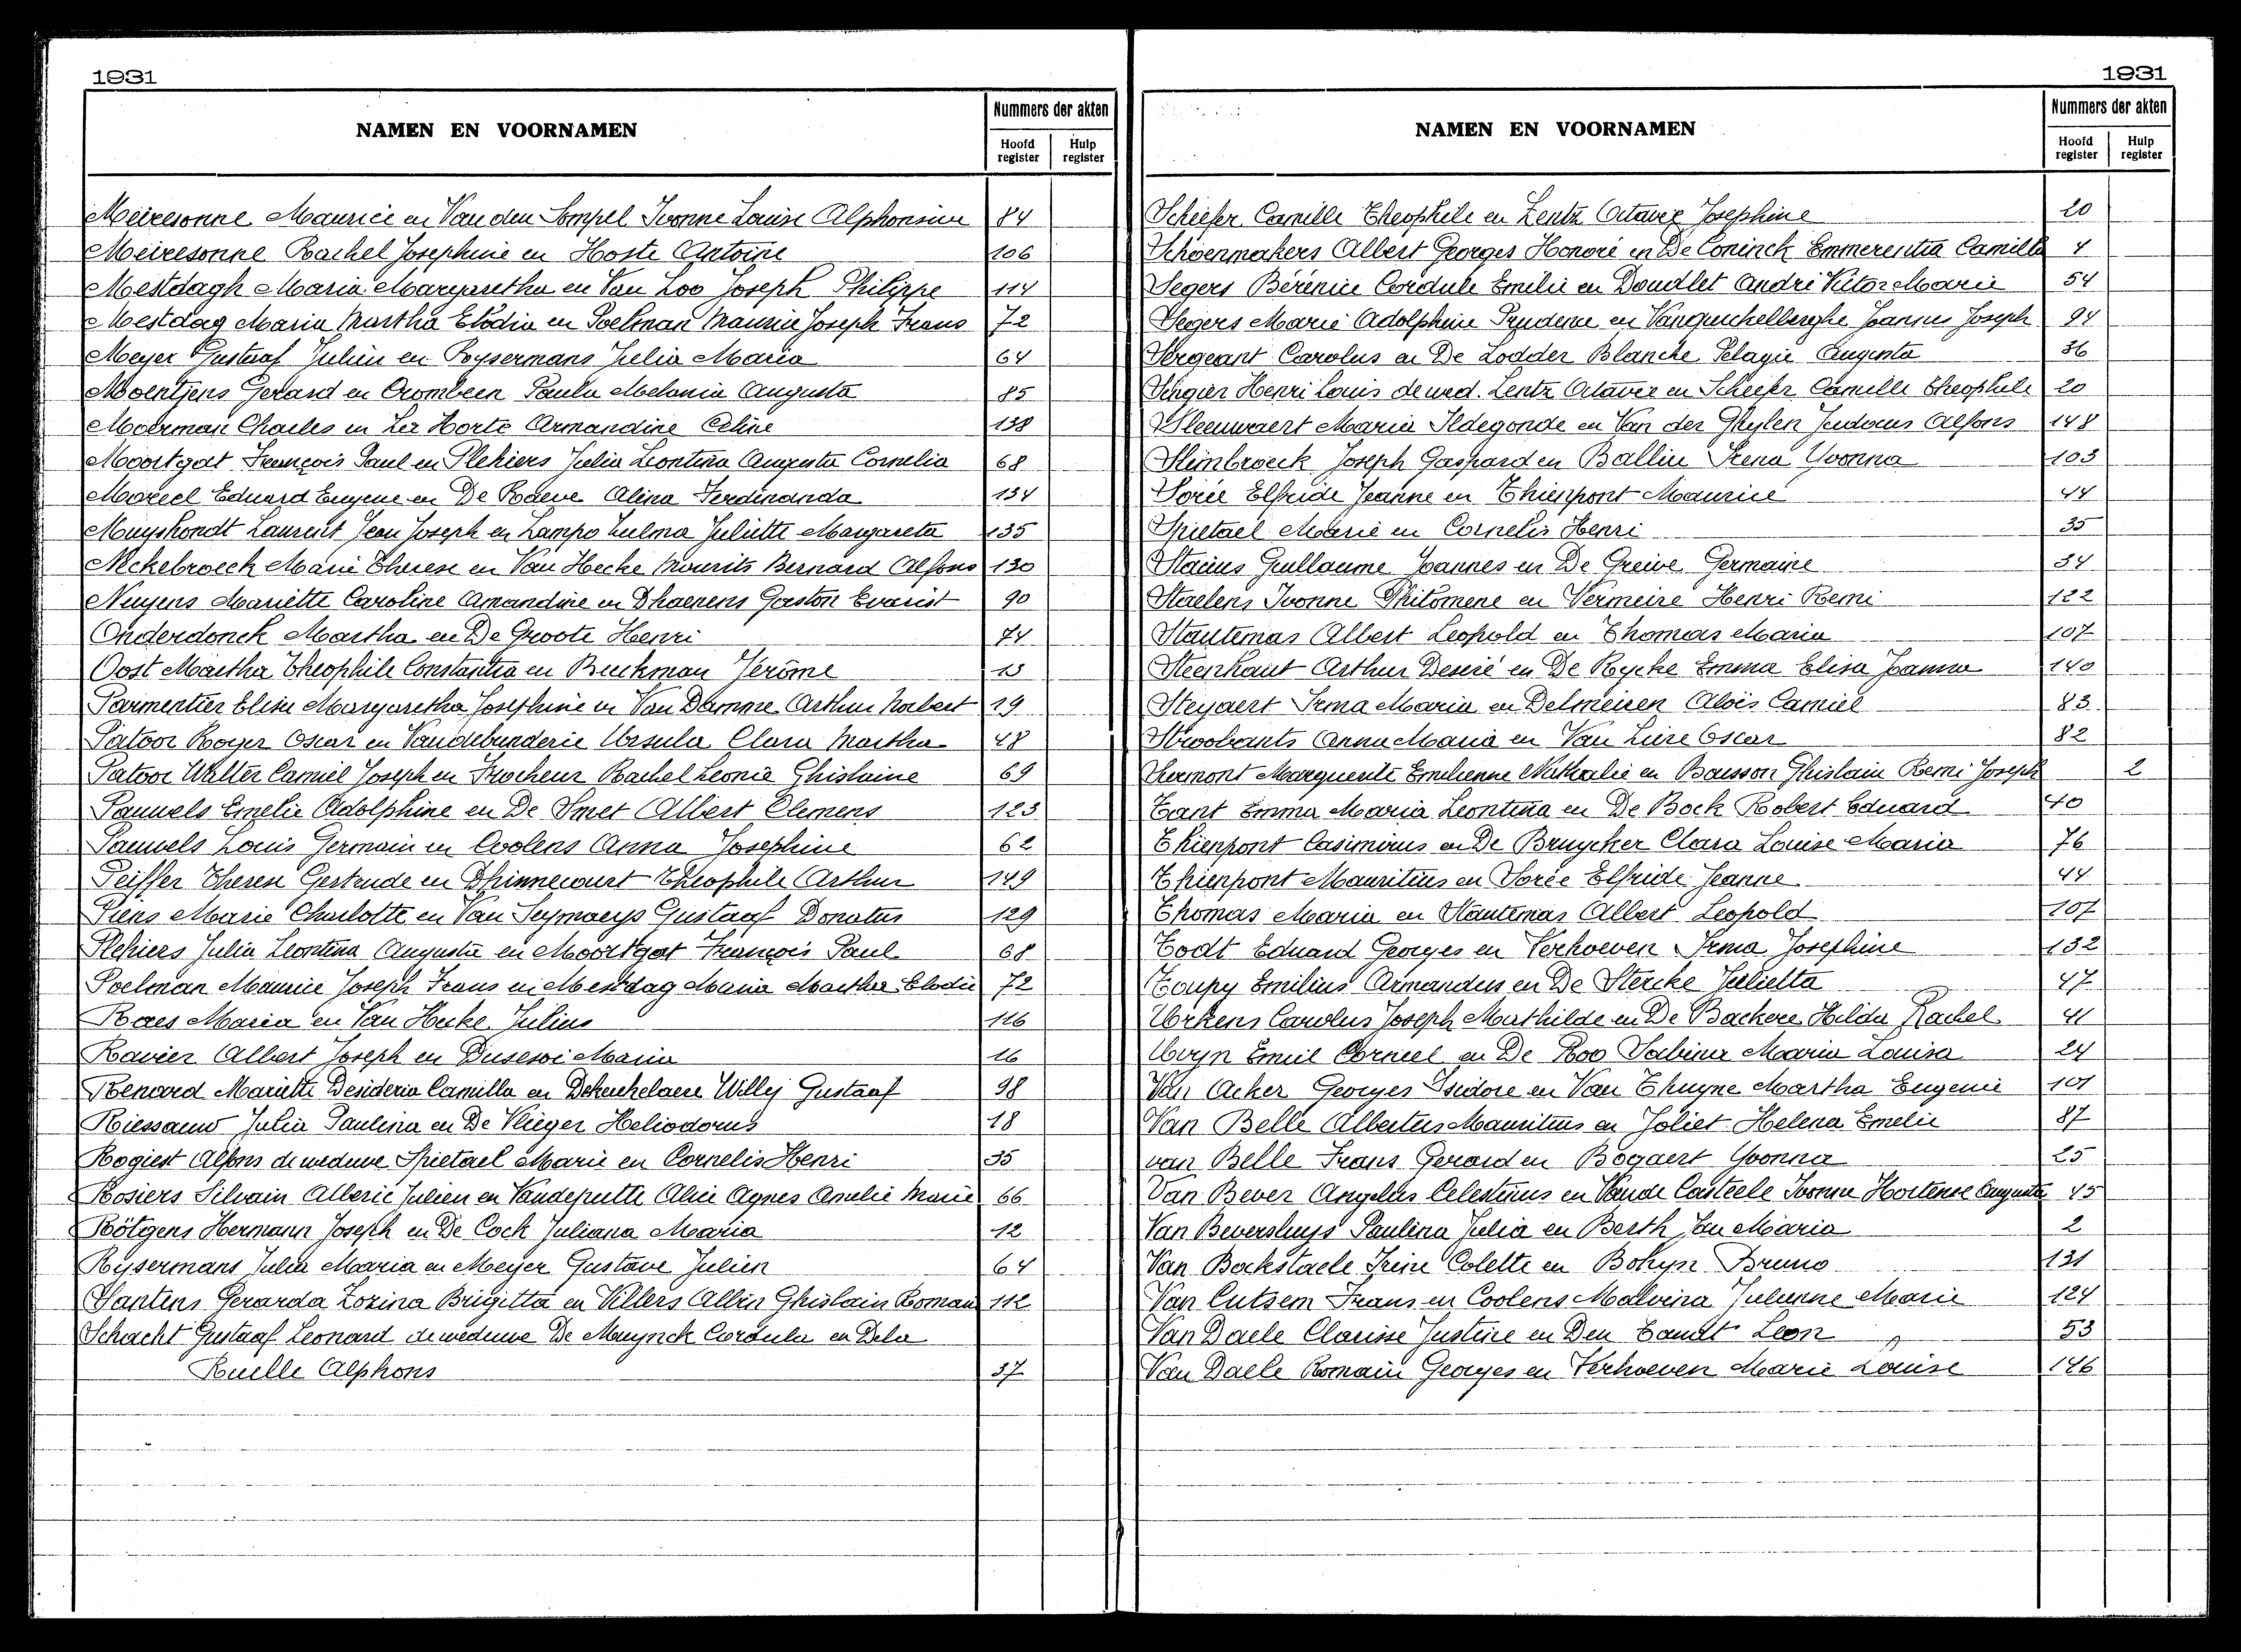 1931
NAMEN EN VOORNAMEN
Nummers der akten
Hoofd register
Hulp register
Meiresonne Maurice en Van den Sompel Ivonne Louise Alphonsine 84
Meiresonne Rachel Josephine en Hoste Antoine 106
Mestdagh Maria Margaretha en Van Loo Joseph Philippe 114
Mestdag Maria Martha Elodia en Poelman Maurice Joseph Frans 72
Meyer Gustaaf Julien en Rysermans Julia Maria 64
Moentjens Gerard en Crombeen Paula Melania Augusta 85
Moerman Charles en Horte Armandine Celine 138
Moortgat François Paul en Plekiers Julia Leontina Augusta Cornelia 68
Moreel Eduard Eugene en De Rodeve Alina Ferdinanda 134
Muyshondt Laurent Jean Joseph en Lampo Zulma Juliette Margareta 135
Nekebroeck Marie Therese en Van Hecke Mourits Bernard Alfons 130
Nuyens Mariette Caroline Amandine en Dhaenens Gaston Evarist 90
Onderdonck Martha en De Groote Henri 74
Oost Martha Theophile Constantia en Beeckman Jerôme 13
Parmentier Elisa Margaretha Josephine en Van Damme Arthur Norbert 19
Patoor Roger Oscar en Vandebunderie Ursula Clara Martha 48
Patoor Walter Camiel Joseph en Rachel Leonie Ghislaine 69
Pauwels Emelie Adolphine en De Smet Albert Clemens 123
Pauwels Louis Germain en Coolens Anna Josephine 62
Peiffer Therese Gertrude en Dhinnecourt Theophile Arthur 149
Piens Marie Charlotte en Van Seymoeys Gustaaf Donatus 129
Plekiers Julia Leontina Augusta en Moortgat François Paul 68
Poelman Maurice Joseph Frans en Mestdag Maria Martha Elodie 72
Raes Maria en Van Hecke Julius 116
Ravier Albert Joseph en Dusesoi Maria 16
Renard Mariette Desideria Camilla en Dekeukelaere Willy Gustaaf 98
Riessauw Julia Paulina en De Vlieger Heliodorus 18
Rogiest Alfons de weduwe Spietael Marie en Cornelis Henri 35
Rosiers Silvain Alberic Julien en Vandeputte Alice Agnes Amelie Marie 66
Rötgens Hermann Joseph en De Cock Juliana Maria 12
Rysermans Julia Maria en Meyer Gustave Julien 64
Santens Gerarda Zozina Brigitta en Villers Albin Ghislain Roman 112
Schacht Gustaaf Leonard de weduwe De Muynck Cordula en Dela
Ruelle Alphons 37
1931
NAMEN EN VOORNAMEN
Nummers der akten
Hoofd register
Hulp register
Scheefer Camille Theophile en Lentz Octavie Josephine 20
Schoenmakers Albert Georges Honoré en De Coninck Emmerentia Camilla 4
Segers Bérénice Cordule Emilie en Doudlet André Victor Marie 54
Segers Marie Adolphine Prudence en Vanquickelberghe Joannes Joseph 94
Sergeant Carolus en De Lodder Blanche Pelagie Augusta 36
Singier Henri Louis de wed. Lentz Octavie en Scheefer Camille Theophile 20
Sleeuwaert Maria Ildegonde en Van der Ghylen Judocus Alfons 148
Slembroeck Joseph Gaspard en Ballin Irena Yvonna 103
Sorée Elfride Jeanne en Thienpont Maurice 44
Spietael Marie en Cornelis Henri 35
Stacius Guillaume Joannes en De Greive Germaine 34
Staelens Ivonne Philomene en Vermeire Henri Remi 122
Stautemas Albert Leopold en Thomas Maria 107
Steenhaut Arthur Desiré en De Rycke Emma Elisa Joanna 140
Steyaert Irma Maria en Delmeiren Aloïs Camiel 83
Stroobants Anna Maria en Van Liere Oscar 82
Surmont Marguerite Emilienne Nathalie en Bausson Ghislain Remi Joseph 2
Tant Emma Maria Leontina en De Bock Robert Eduard 40
Thienpont Casimirus en De Bruycker Clara Louise Maria 76
Thienpont Mauritius en Sorée Elfride Jeanne 44
Thomas Maria en Stautemas Albert Leopold 107
Todt Eduard Georges en Verhoeven Irma Josephine 132
Toupy Emilius Armandus en De Stercke Julietta 47
Urkens Carolus Joseph Mathilde en De Backere Hilda Rachel 41
Uvyn Emiel Corneel en De Roo Sabina Maria Louisa 24
Van Acker Georges Isidore en Van Thuyne Martha Eugenie 101
Van Belle Albertus Mauritius en Joliet Helena Emelie 87
van Belle Frans Gerard en Bogaert Yvonna 25
Van Bever Angelus Celestinus en Vande Casteele Ivonne Hortense Augusta 45
Van Beversluys Paulina Julia en Berth Jan Maria 2
Van Bockstaele Irene Colette en Bohyn Bruno 131
Van Cutsem Frans en Coolens Malvina Julienne Marie 124
Van Daele Clarisse Justine en Den Tandt Leon 53
Van Daele Romain Georges en Verhoeven Marie Louise 146